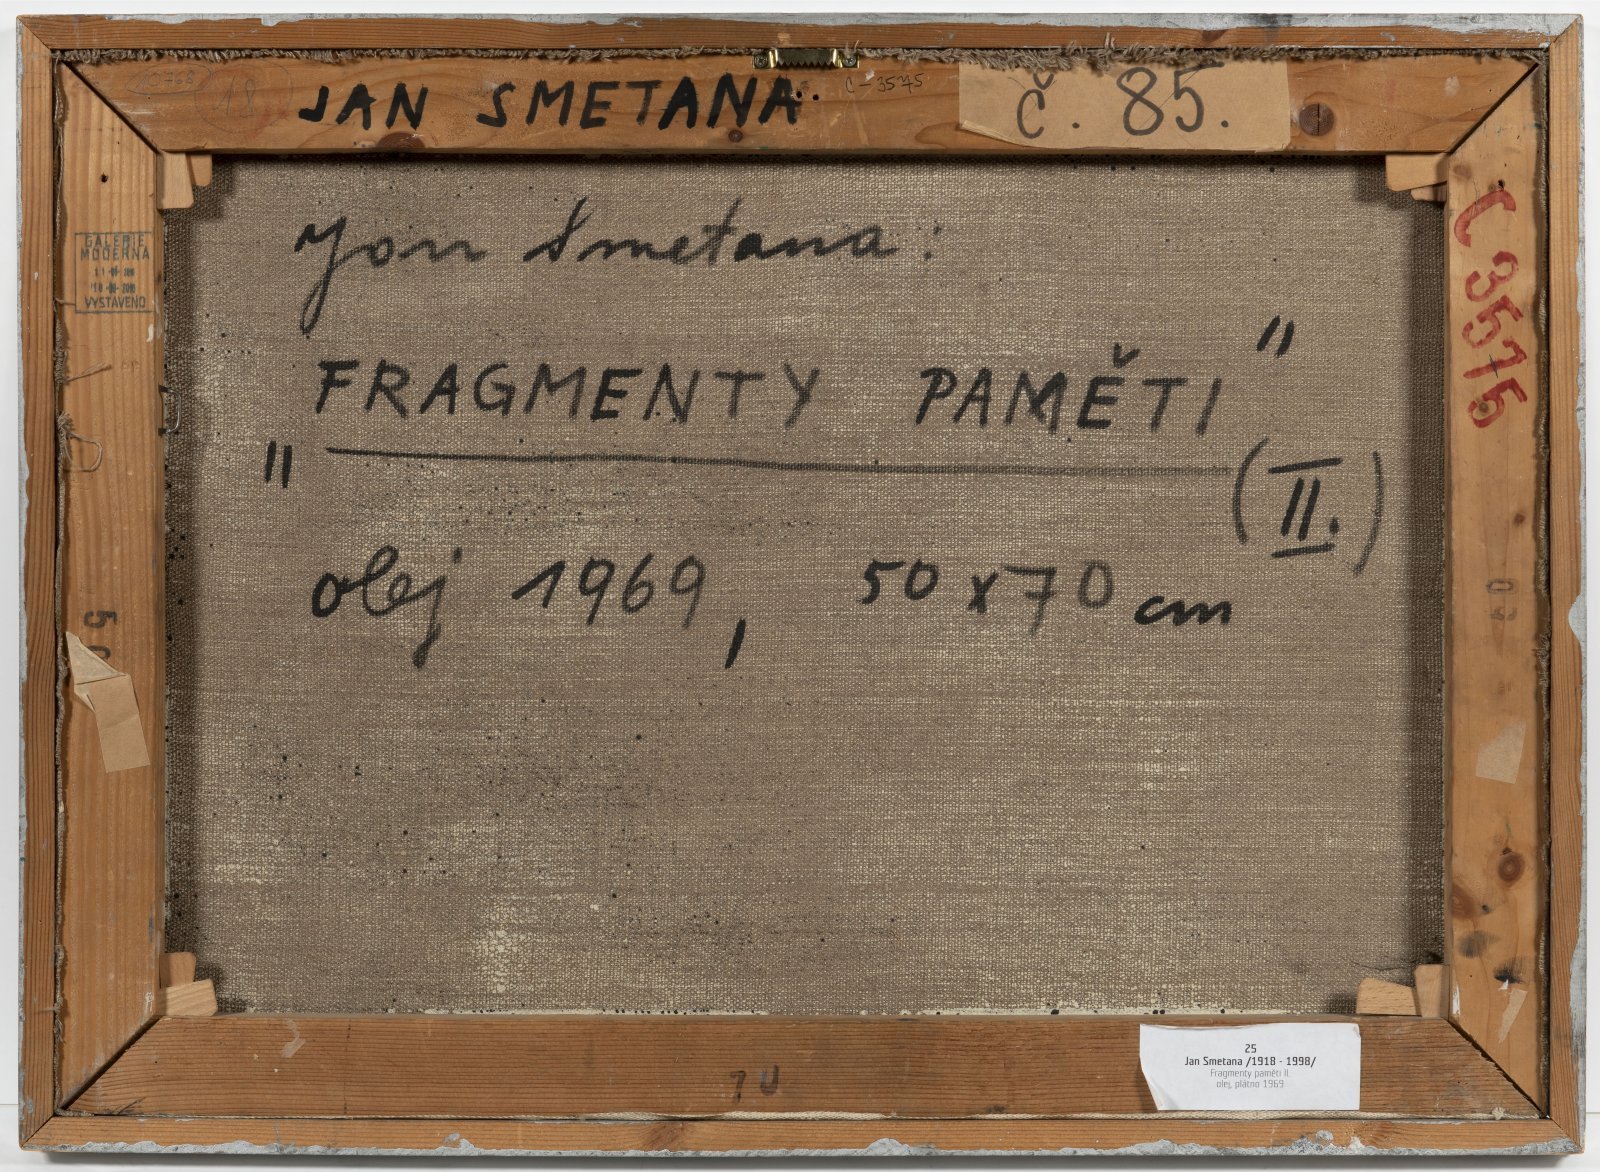 18
JAN SMETANA
C-3575
č. 85.
GALERIE
MODERNA
VYSTAVENO
C 3575
Jan Smetana:
„FRAGMENTY PAMĚTI"
(II.)
olej 1969, 50x70 cm
50
70
25
Jan Smetana /1918 - 1998/
Fragmenty paměti II.
olej, plátno 1969